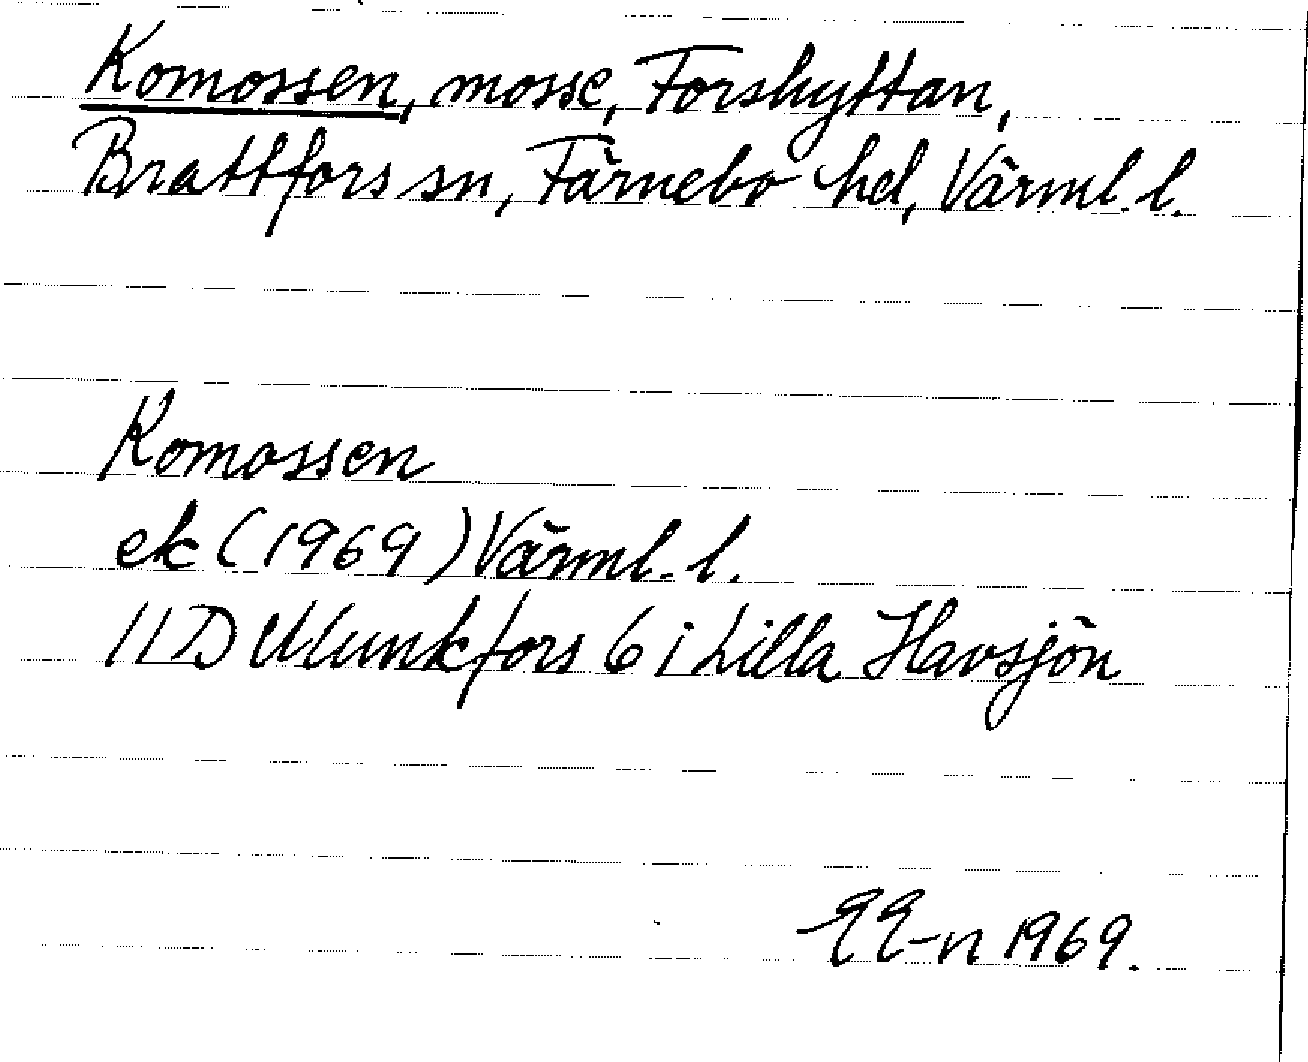 Komossen, mosse, Forshyttan,
Brattfors sn, Färnebo hd, Värml. l.
Komossen
ek (1969) Värml. l.
11D Munkfors 6 i Lilla Havsjön
1969.